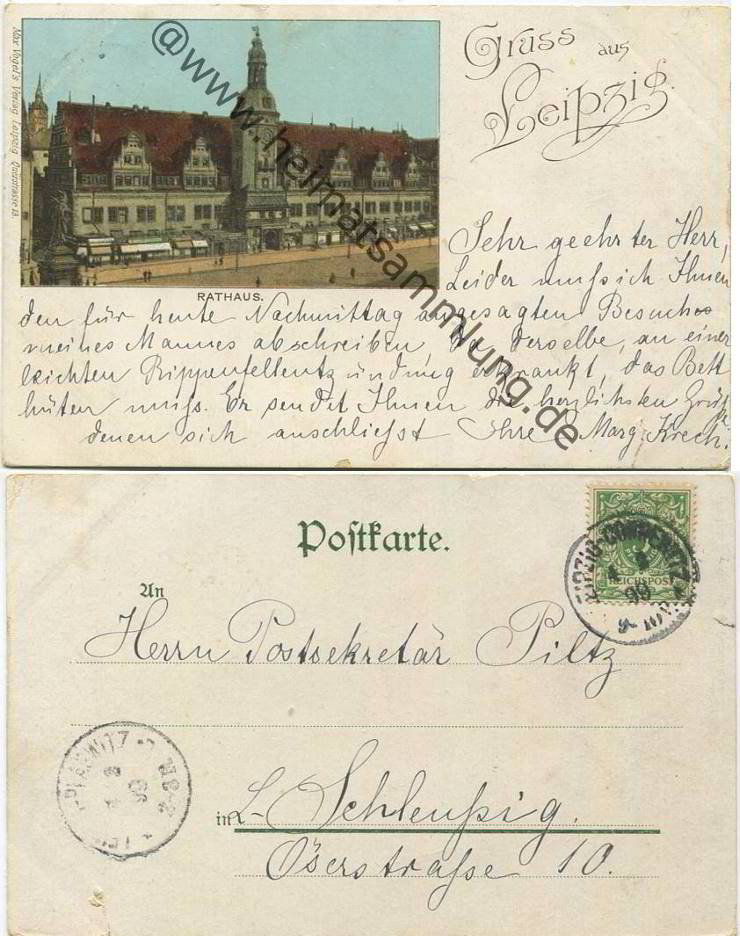 Gruss aus
Leipzig.
Max Vogel's Verlag Leipzig
RATHAUS.
@www.heimatsammlung.de
Sehr geehrter Herr,
Leider muss ich Ihnen
den für heute Nachmittag angesagten Besuch
meines Mannes abschreiben da derselbe, an einer
leichten Rippenfellentzündung erkrankt, das Bett
hüten muss. Er sendet Ihnen die herzlichsten Grüße
denen sich anschliesst Ihre Marg. Krech.
Postkarte.
LEIPZIG-CONNEWITZ
4 8
99
REICHSPOST
An
Herrn Postsekretär Piltz
PLAGWITZ
99
in L. Schleußig.
Oserstraße 10.